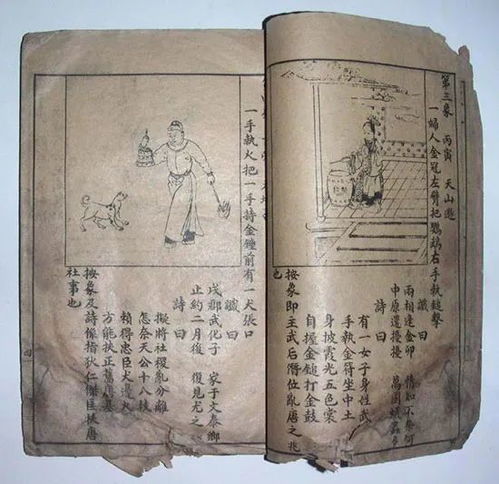 第三象 丙寅 天山遯
一婦人金冠左臂把鸚鵡右手執鎚擊
讖曰
兩相達金卯 情如不奈何
中原還擾擾 萬國蟻蟲多
詩曰
有一女子身性武
手執金符坐中土
身披霞光五色裳
自握金鎚打金鼓
按象即主武后僭位亂唐之兆
也
一手執火把一手持金鐘前有一犬張口
讖曰
戌郡武化子 家子文泰鄉
止約二月後 復見尤之
詩曰
擬將社稷亂分離
怎奈天公十八枝
賴得忠臣犬邊火
方能扶正舊唐基
按象及詩係指狄仁傑匡唐
社事也
四